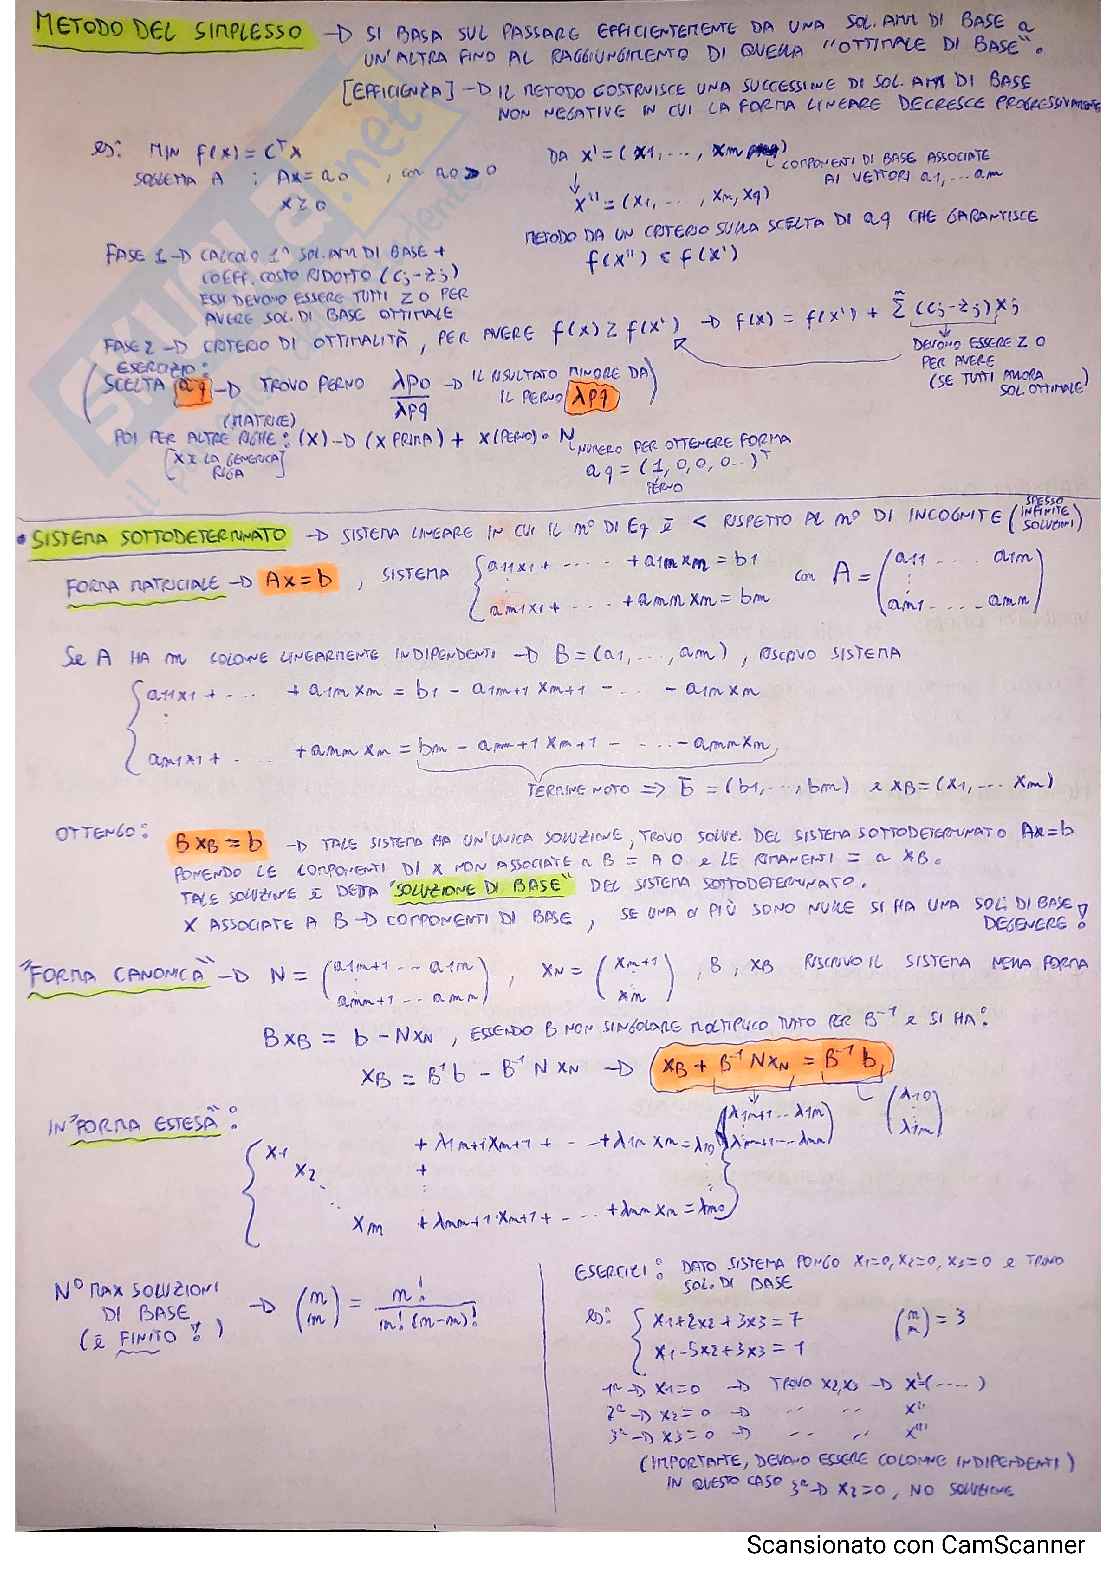 METODO DEL SIMPLESSO → SI BASA SUL PASSARE EFFICIENTEMENTE DA UNA SOL. AMM DI BASE a
UN'ALTRA FINO AL RAGGIUNGIMENTO DI QUELLA "OTTIMALE DI BASE".
[EFFICIENZA] → IL METODO COSTRUISCE UNA SUCCESSIONE DI SOL. AMM DI BASE
NON NEGATIVE IN CUI LA FORMA LINEARE DECRESCE PROGRESSIVAMENTE
es: MIN f(x) = C^T x
SOGGETTA A : Ax = a0 , con a0 > 0
x ≥ 0
DA x' = (x1, ..., xm)
COMPONENTI DI BASE ASSOCIATE
AI VETTORI a1, ... am
↓
x'' = (x1, ..., xm, xq)
METODO DA UN CRITERIO SULLA SCELTA DI aq CHE GARANTISCE
f(x'') ≤ f(x')
FASE 1 → CALCOLO 1ª SOL. AMM DI BASE +
COEFF. COSTO RIDOTTO (cj - zj)
ESSI DEVONO ESSERE TUTTI ≥ 0 PER
AVERE SOL. DI BASE OTTIMALE
FASE 2 → CRITERIO DI OTTIMALITÀ, PER AVERE f(x) ≥ f(x') → f(x) = f(x') + Σ (cj - zj) xj
DEVONO ESSERE ≥ 0
PER AVERE
(SE TUTTI ALLORA
SOL OTTIMALE)
ESERCIZIO:
SCELTA aq → TROVO PERNO λp0/λpq → IL RISULTATO MINORE DA
IL PERNO λpq
(MATRICE)
POI PER ALTRE RIGHE: (X) → (X PRIMA) + X(PERNO) · N NUMERO PER OTTENERE FORMA
[X È LA GENERICA
RIGA]
aq = (1, 0, 0, 0..)^T
PERNO
• SISTEMA SOTTODETERMINATO → SISTEMA LINEARE IN CUI IL n° DI Eq È < RISPETTO AL n° DI INCOGNITE (SPESSO
INFINITE
SOLUZIONI)
FORMA MATRICIALE → Ax = b , SISTEMA { a11x1 + ..... + a1nxn = b1 con A = ( a11 a1n
am1x1 + ..... + amnxn = bm am1 ..... amn )
Se A HA m COLONNE LINEARMENTE INDIPENDENTI → B = (a1, ..., am) , RISCRIVO SISTEMA
{ a11x1 + ... + a1mxm = b1 - a1m+1 xm+1 - ... - a1nxn
am1x1 + ... + ammxm = bm - amm+1 xm+1 - ... - amnxn
TERMINE NOTO ⇒ b̄ = (b1, ..., bm) e xB = (x1, ... xm)
OTTENGO: BxB = b → TALE SISTEMA HA UN'UNICA SOLUZIONE, TROVO SOLUZ. DEL SISTEMA SOTTODETERMINATO Ax=b
PONENDO LE COMPONENTI DI X NON ASSOCIATE a B = A 0 e LE RIMANENTI = a XB.
TALE SOLUZIONE È DETTA "SOLUZIONE DI BASE" DEL SISTEMA SOTTODETERMINATO.
X ASSOCIATE A B → COMPONENTI DI BASE, SE UNA o PIÙ SONO NULLE SI HA UNA SOL. DI BASE
DEGENERE!
"FORMA CANONICA" → N = ( a1m+1 ... a1n , xN = ( xm+1 , B, xB RISCRIVO IL SISTEMA NELLA FORMA
amm+1 ... amn ) xn )
BxB = b - NxN , ESSENDO B NON SINGOLARE MOLTIPLICO TUTTO PER B^-1 e SI HA:
xB = B^-1 b - B^-1 N xN → xB + B^-1 N xN = B^-1 b
( λ1m+1 ... λ1n ( λ10
λmm+1 ... λmn ) λm )
IN "FORMA ESTESA":
{ x1 + λ1m+1 xm+1 + ... + λ1n xn = λ10
x2 +
xm + λmm+1 xm+1 + ... + λmn xn = λm0 }
N° MAX SOLUZIONI
DI BASE → (n m) = n! / m!(n-m)!
(È FINITO!)
ESERCIZI: DATO SISTEMA PONGO x1=0, x2=0, x3=0 e TROVO
SOL. DI BASE
es: { x1 + 2x2 + 3x3 = 7 (n m) = 3
x1 - 5x2 + 3x3 = 1
1ª → x1=0 → TROVO x2,x3 → x'=(.....)
2ª → x2=0 → " " x''
3ª → x3=0 → " " x'''
(IMPORTANTE, DEVONO ESSERE COLONNE INDIPENDENTI)
IN QUESTO CASO 3ª → x2=0, NO SOLUZIONE
Scansionato con CamScanner